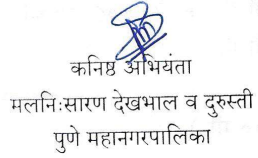 कनिष्ठ अभियंता
मलनि:सारण देखभाल व दुरुस्ती
पुणे महानगरपालिका